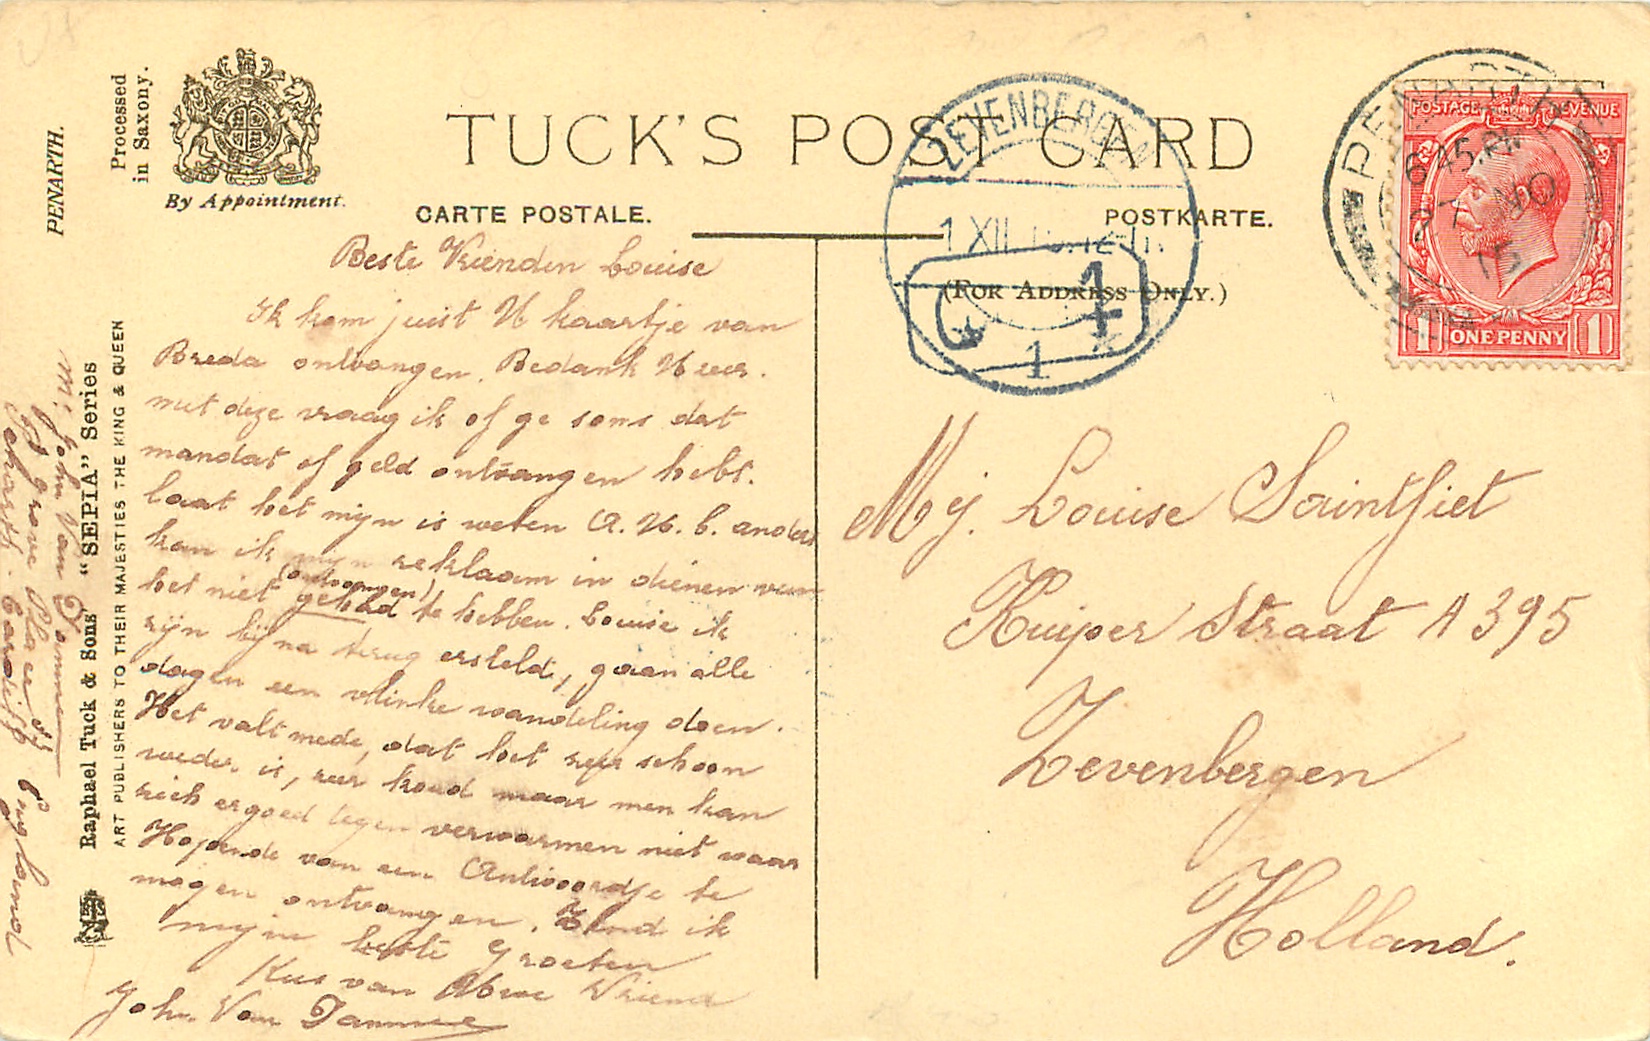 PENARTH.
Processed
in Saxony.
By Appointment.
TUCK'S POST CARD
CARTE POSTALE.
POSTKARTE.
(FOR ADDRESS ONLY.)
ZEVENBERGEN
1 XII
1
PENARTH
6 45. PM
27 NO
15
POSTAGE REVENUE
1 ONE PENNY 1
Beste Vrienden Louise
Ik kom juist U kaartje van
Breda ontvangen. Bedank U zeer.
met deze vraag ik of ge soms dat
mandat of geld ontvangen hebt.
laat het mijn is weten A. U. b. anders
kan ik mijn reklaam in dienen van
het niet gehad (ontvangen) te hebben. Louise ik
zijn bijna terug ersteld, gaan alle
dagen een vlinke wandeling doen.
Het valt mede, dat het zeer schoon
weder is, zeer koud maar men kan
zich ergoed tegen verwarmen niet waar
Hopende van een Antwoordje te
mogen ontvangen. Zend ik
mijn beste Groeten
Kus van Uwe Vriend
John. Van Damme
Mr John Van Damme
grove Place
Cardiff England
Raphael Tuck & Sons' "SEPIA" Series
ART PUBLISHERS TO THEIR MAJESTIES THE KING & QUEEN
Mej. Louise Saintfiet
Kuiper Straat A 395
Zevenbergen
Holland.